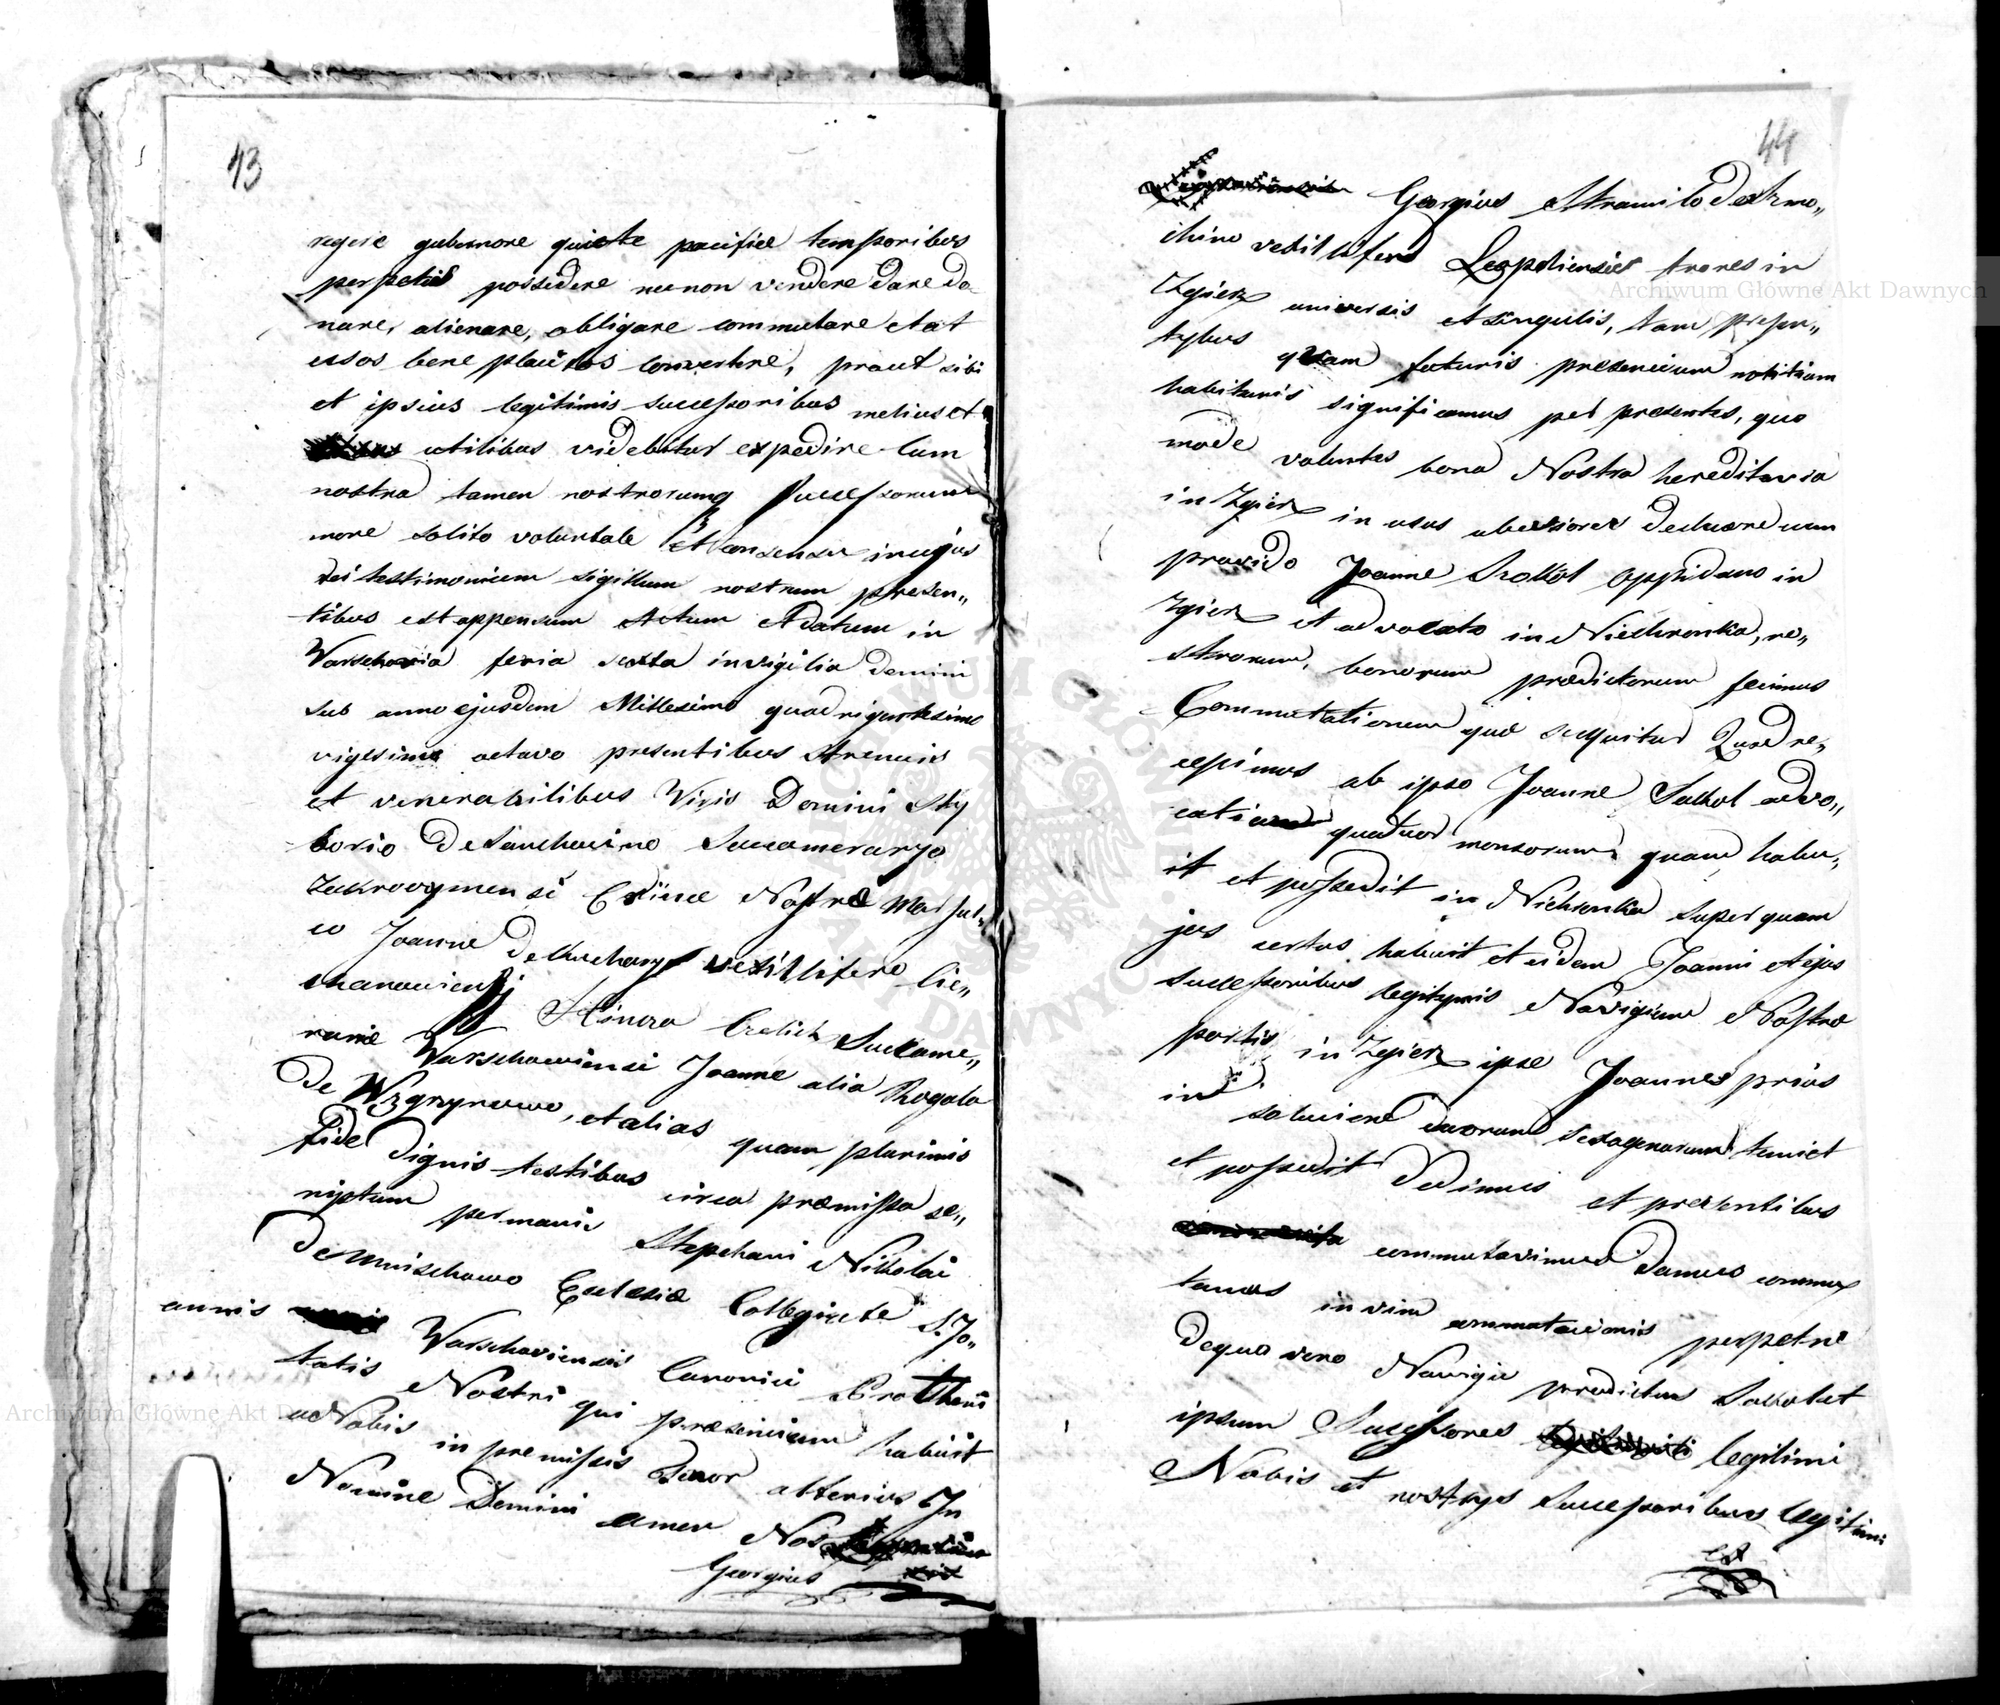 43
regere gubernare quiete pacifice temporibus
perpetuis possidere necnon vendere Dare Do
nare, alienare, obligare commutare et at
usos bene placitos convertere, prout sibi
et ipsius legitimis successoribus melius et
utilibus videbitur expedire cum
nostra tamen nostrorumq Successorum
more solito voluntate et consensu in cujus
rei testimonium sigillum nostrum presen„
tibus est appensum Actum et datum in
Warschovia feria sexta in vigilia Domini
sub anno ejusdem Millesimo quadrigentesimo
vigesimo octavo presentibus Strenuis
et venerabilibus Viris Domini Sty
borio De Sanchocino Succameraryo
Zakroczymensi Curiæ Nostræ Marsal„
co Joanne De Kuchary vexillifero Cie„
chanoviensi
ramie Warschoviensi Joanne alia Rogala
De Wzgrzynowo, et alias quam plurimis
fide Dignis testibus circa præmissa sc„
riptum per manus Stephani Nikolai
De Mnischowo Eclesiæ Collegiate S. Jo„
annis Warschoviensis Canonici Protheno
tatis Nostri qui presencium habuit
a Nobis in premissis Tenor alterius In
Nomine Domini amen Nos
Georgius
44
Georgius Stramilo De
chino vexillifero Leopoliensis frares in
Zgierz universis et singulis, tam presen„
tybus quam futuris presencium notitiam
habituris significamus per presentes, quo
mode volentes bona Nostra hereditaria
in Zgierz in usus uberiores Deducere cum
provido Joanne Sokol oppidano in
Zgierz et advocato in Niechronka, no„
strorum, bonorum prædictorum fecimus
Commutationem que sequitur Quod re„
cepimus ab ipso Joanne Sokol advo„
catiam quatuor mansorum quam habu„
it et possedit in Nichronka super quam
jus certus habuit et eidem Joanni et ejus
Successoribus legitymis Navigium Nostro
portis in Zgierz ipse Joannes prius
in solucione duorum sexagenarum tenuit
et possedit Dedimus et presentibus
commutavimus Damus commu
tamus in vim commutacionis perpetue
De quo vero Navigio predictus Sokol et
ipsum Successores legitimi
Nobis et nostrys Successoribus legitimi